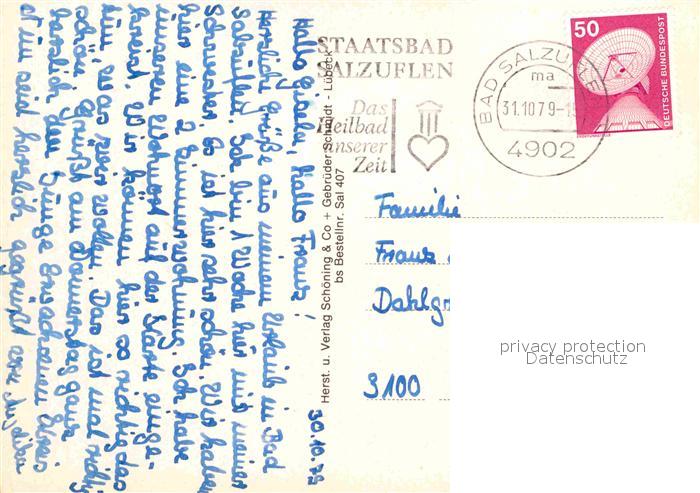 30.10.79
Hallo Gisela, Hallo Franz!
Herzliche Grüße aus meinem Urlaub in Bad
Salzuflen. Ich bin 1 Woche hier mit meiner
Schwester. Es ist hier sehr schön. Wir haben
hier eine 2 Zimmerwohnung. Ich habe
unseren Wohnort auf der Karte einge-
kreuzt. Wir können hier so richtig das
tun, was wir wollen. Das ist mal richtig
schön.
herzlich
ist nun seid herzlich gegrüßt
Herst. u. Verlag Schöning & Co + Gebrüder Schmidt - Lübeck
bs Bestellnr. Sal 407
STAATSBAD
SALZUFLEN
Das
Heilbad
unserer
Zeit
BAD SALZUFLEN
ma
31.10.79-1
4902
50
DEUTSCHE BUNDESPOST
Familie
Franz
Dahlgr
3100
privacy protection
Datenschutz